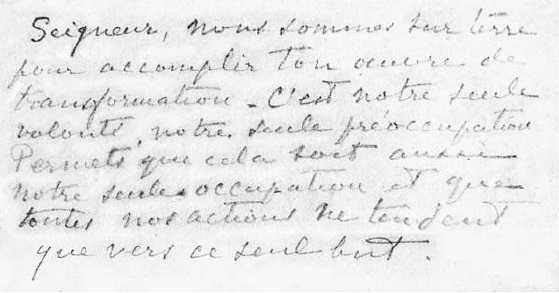 Seigneur, nous sommes sur terre
pour accomplir ton œuvre de
transformation. C'est notre seule
volonté, notre seule préoccupation
Permets que cela soit aussi
notre seule occupation et que
toutes nos actions ne tendent
que vers ce seul but.